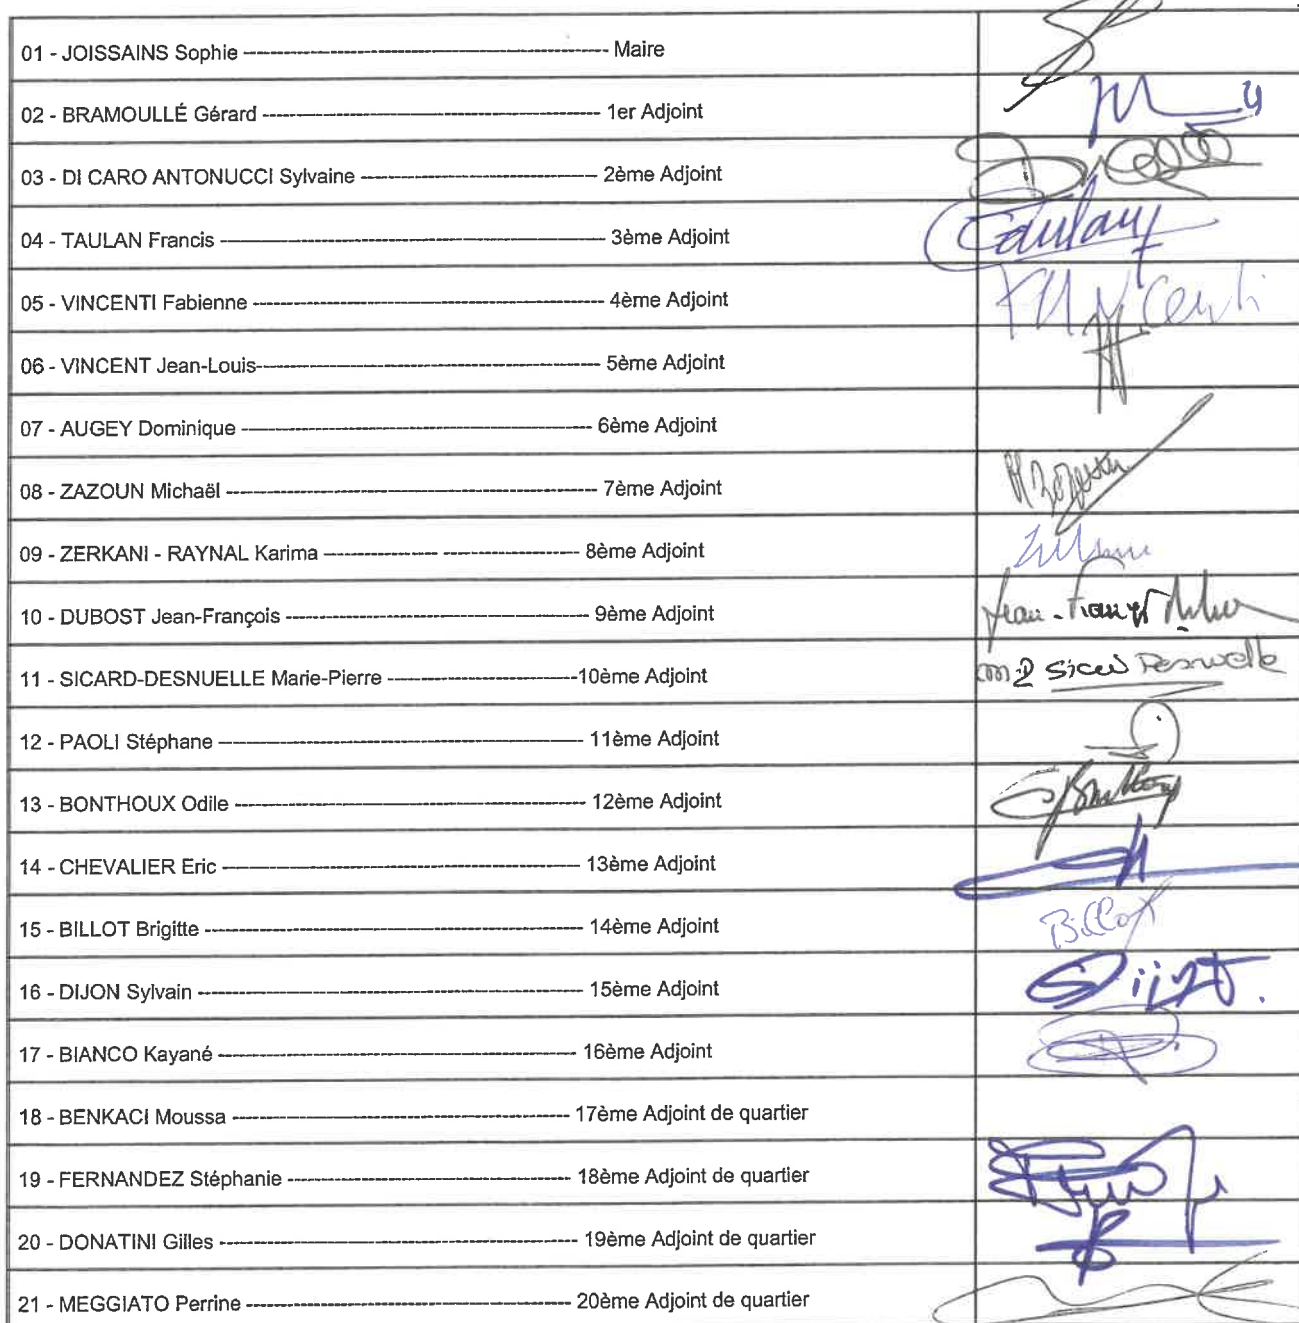 01 - JOISSAINS Sophie ------------------------------------------------ Maire
02 - BRAMOULLÉ Gérard --------------------------------------------- 1er Adjoint
03 - DI CARO ANTONUCCI Sylvaine -------------------------------- 2ème Adjoint
04 - TAULAN Francis --------------------------------------------------- 3ème Adjoint
Taulan
05 - VINCENTI Fabienne ----------------------------------------------- 4ème Adjoint
Vincenti
06 - VINCENT Jean-Louis---------------------------------------------- 5ème Adjoint
07 - AUGEY Dominique ----------------------------------------------- 6ème Adjoint
08 - ZAZOUN Michaël -------------------------------------------------- 7ème Adjoint
09 - ZERKANI - RAYNAL Karima --------------- ------------------ 8ème Adjoint
10 - DUBOST Jean-François ----------------------------------------- 9ème Adjoint
Jean-François
11 - SICARD-DESNUELLE Marie-Pierre --------------------------10ème Adjoint
M-P Sicard Desnuelle
12 - PAOLI Stéphane ------------------------------------------------- 11ème Adjoint
13 - BONTHOUX Odile ------------------------------------------------ 12ème Adjoint
14 - CHEVALIER Eric ------------------------------------------------ 13ème Adjoint
15 - BILLOT Brigitte --------------------------------------------------- 14ème Adjoint
Billot
16 - DIJON Sylvain ---------------------------------------------------- 15ème Adjoint
17 - BIANCO Kayané ------------------------------------------------ 16ème Adjoint
18 - BENKACI Moussa --------------------------------------------- 17ème Adjoint de quartier
19 - FERNANDEZ Stéphanie -------------------------------------- 18ème Adjoint de quartier
20 - DONATINI Gilles ------------------------------------------------ 19ème Adjoint de quartier
21 - MEGGIATO Perrine -------------------------------------------- 20ème Adjoint de quartier